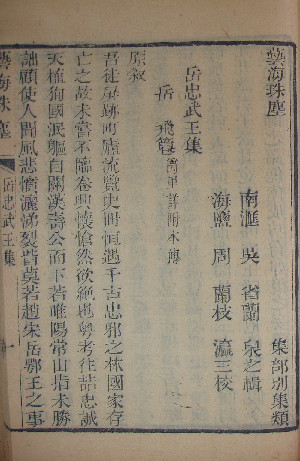 藝海珠塵
集部別集類
南滙 吳省蘭 泉之輯
海鹽 周蘭枝 瀛三校
岳忠武王集
岳飛
原敘
吾徒屏跡町廬流覽史冊恒遇千古忠邪之林國家存
亡之故未嘗不臨卷興懷愴然欲絕也粤考往喆忠誠
天植狥國泯軀自關漢壽公而下若睢陽常山指未勝
詘顧使人聞風悲憤灑涕裂眥莫若趙宋岳鄂王之事
藝海珠塵
岳忠武王集
一